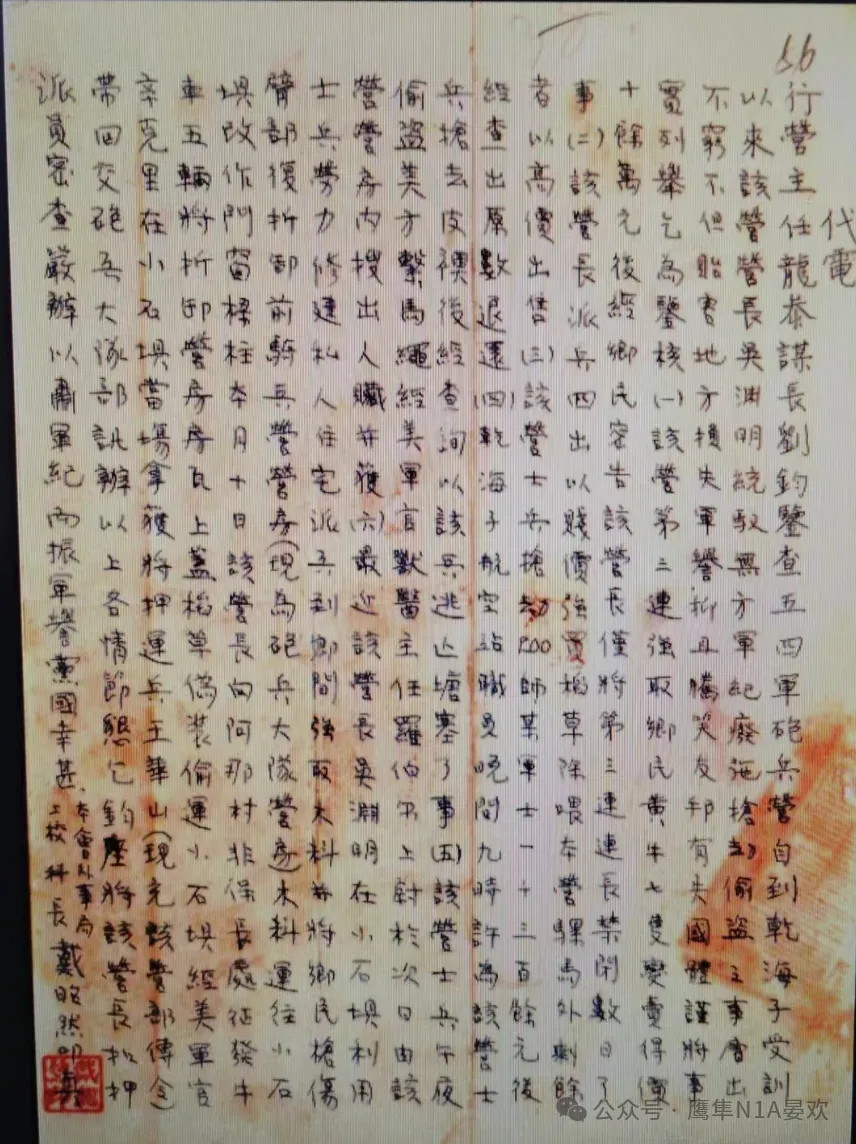 66
代電
行營主任龍參謀長劉鈞鑒查五四軍砲兵營自到乾海子受訓
以來該營營長吳渊明統馭無方軍紀廢弛搶劫偷盜之事層出
不窮不但貽害地方損失軍譽抑且騰笑友邦有失國體謹將事
實列舉乞為鑒核(一)該營第三連強取鄉民黃牛七隻變賣得價
十餘萬元後經鄉民密告該營長僅將第三連連長禁閉數日了
事(二)該營長派兵四出以賤價強買稻草除喂本營騾馬外剩餘
者以高價出售(三)該營士兵搶劫200師某軍士一十三百餘元後
經查出原數退還(四)乾海子航空站職員晚間九時許為該營士
兵搶去皮襖後經查詢以該兵逃亡塘塞了事(五)該營士兵午夜
偷盜美方繫馬繩經美軍官獸醫主任羅伯尔上尉於次日由該
營營房內搜出人贜并獲(六)最近該營長吳淵明在小石垻利用
士兵勞力修建私人住宅派兵到鄉間強取木料并將鄉民槍傷
臂部復折卸前騎兵營營房(現為砲兵大隊營房)木料運往小石
垻改作門窗樑柱本月十日該營長向阿那村非保長處征發牛
車五輛將折卸營房房瓦上蓋稻草偽裝偷運小石垻經美軍官
辛克里在小石垻當場拿獲將押運兵王華山(現充該營部傳令)
帶回交砲兵大隊部訊辦以上各情節懇乞鈞座將該營長扣押
派員密查嚴辦以肅軍紀而振軍譽黨國幸甚 本會外事局
上校科長戴昭然叩真
公众号·鹰隼N1A晏欢